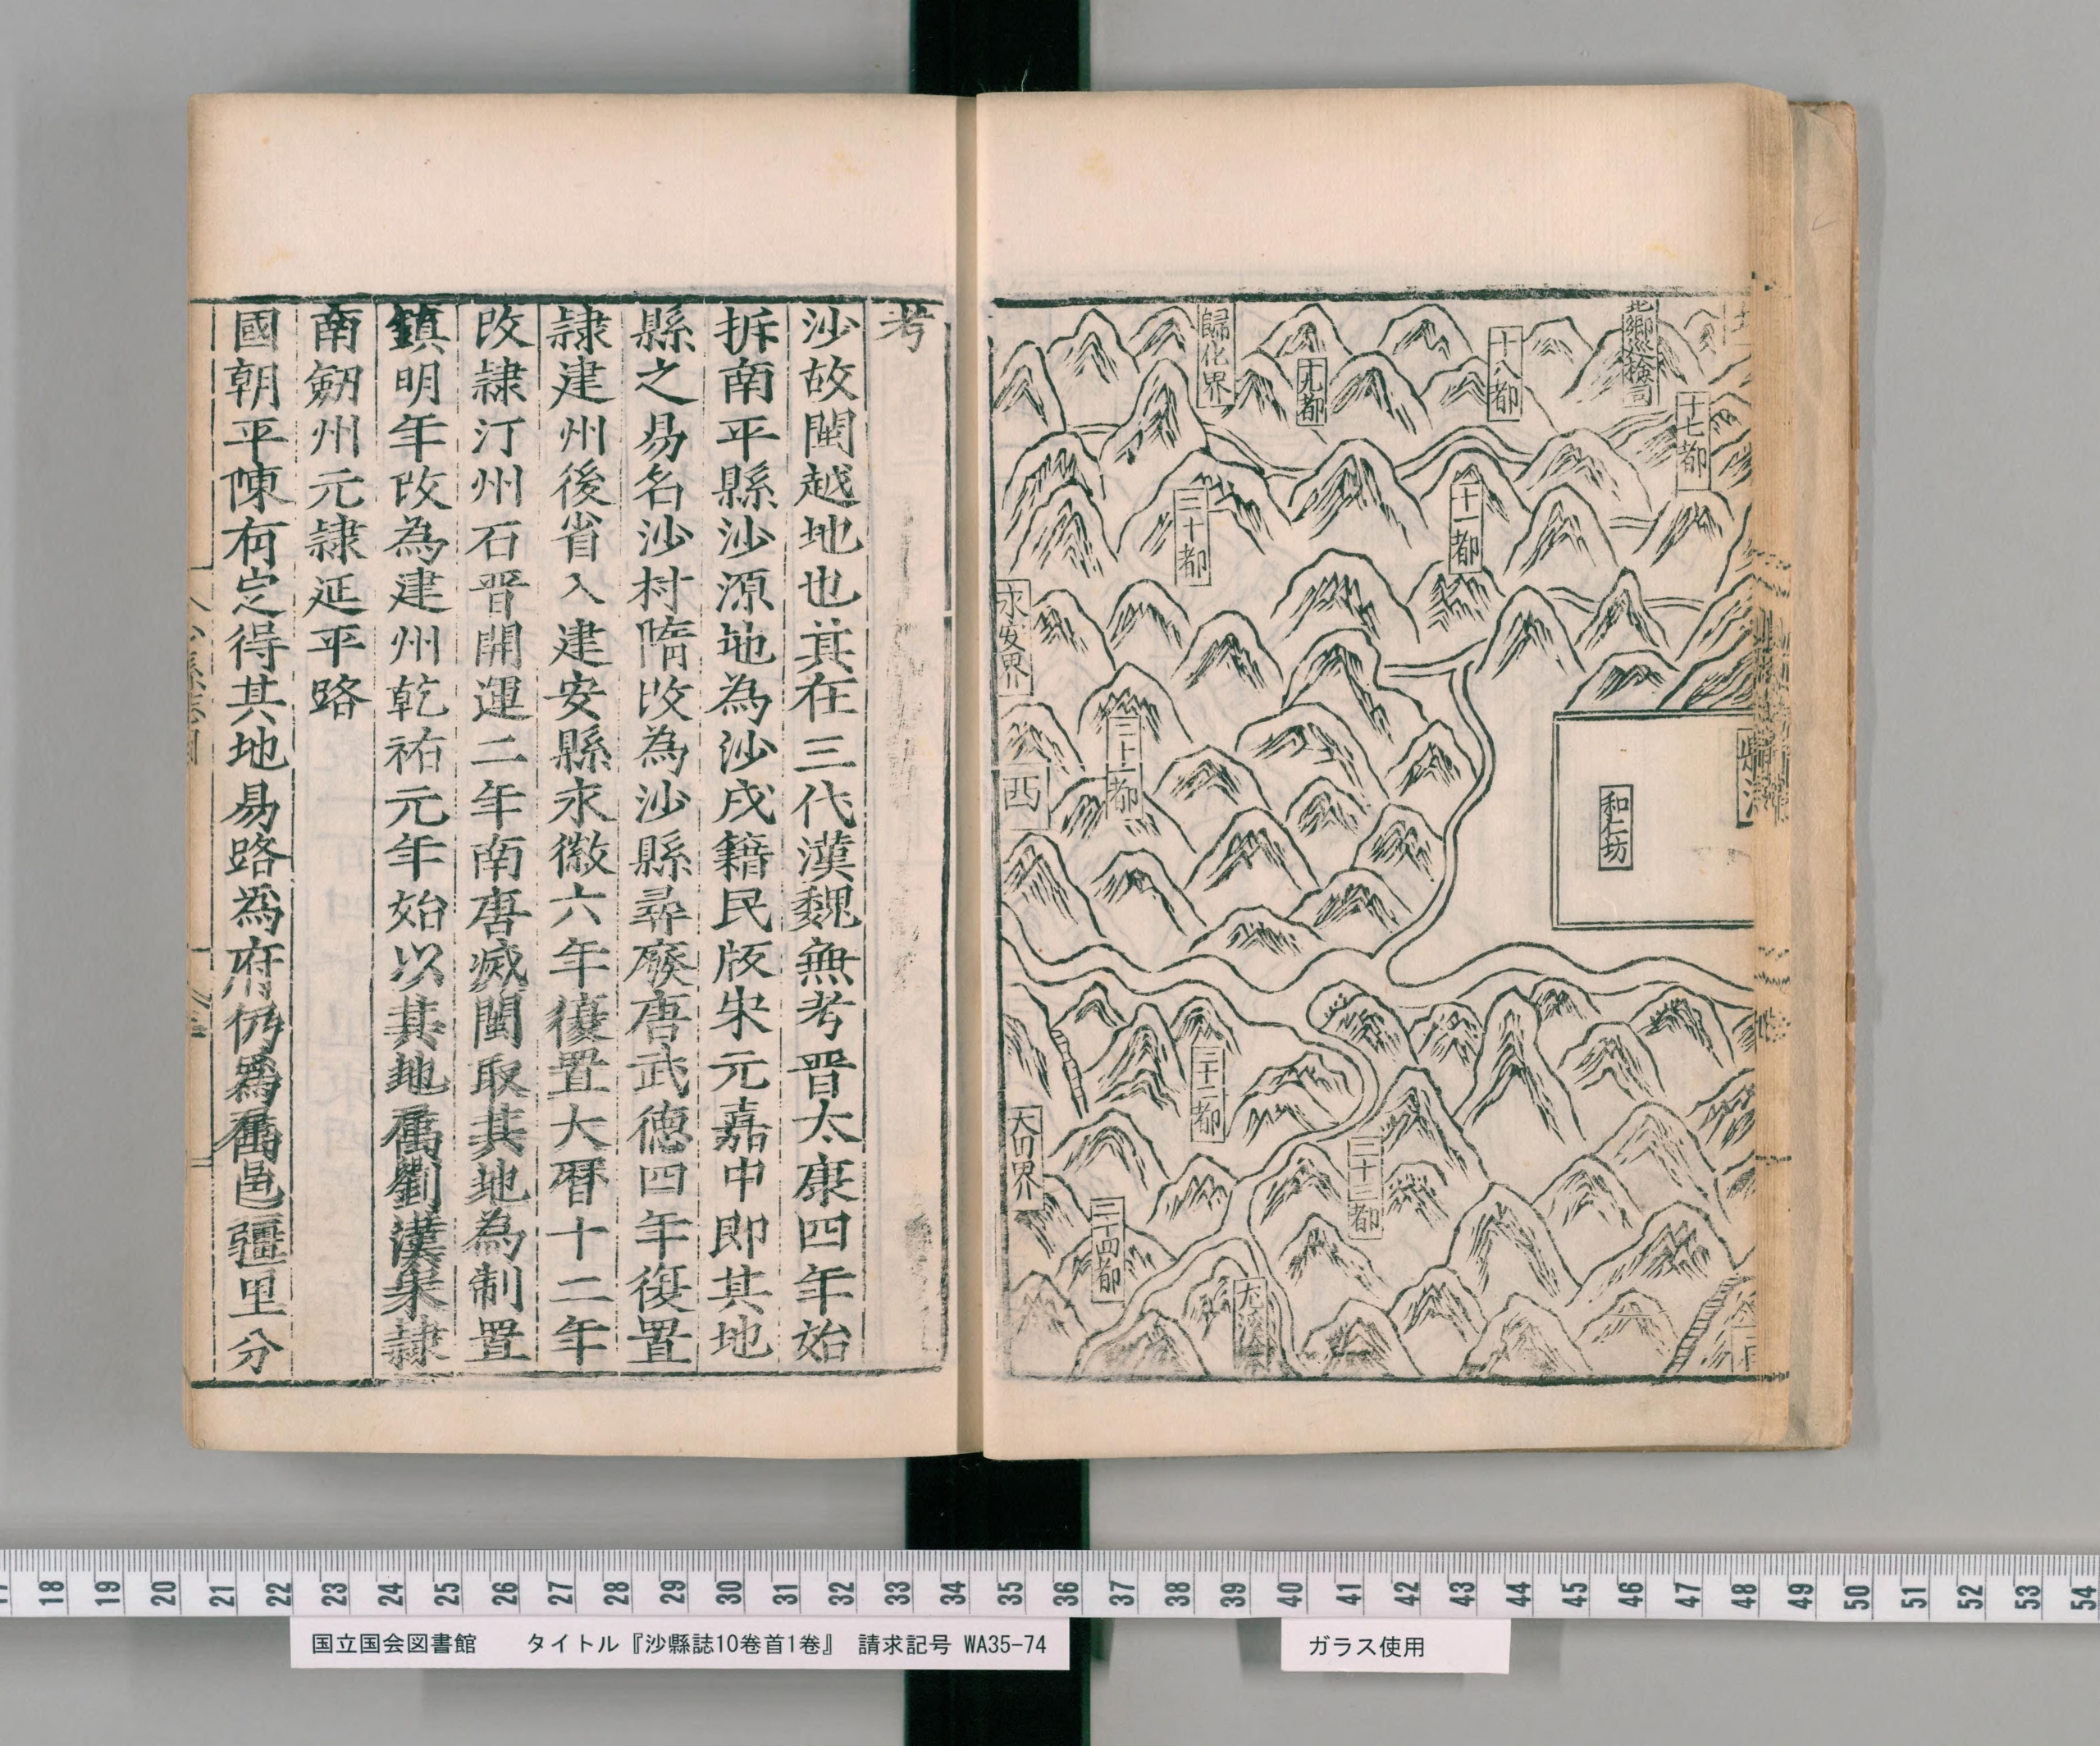 北鄉巡檢司
十七都
十八都
十九都
歸化界
二十都
二十一都
永安界
二十二都
西
和仁坊
大田界
二十四都
考
沙故閩越地也其在三代漢魏無考晉太康四年始
拆南平縣沙源地為沙戍籍民版宋元嘉中即其地
縣之易名沙村隋改為沙縣尋廢唐武德四年復置
隷建州後省入建安縣永徽六年復置大曆十二年
改隷汀州石晉開運二年南唐滅閩取其地為制置
鎮明年改為建州乾祐元年始以其地屬劉漢宋隷
南劒州元隷延平路
國朝平陳有定得其地易路為府仍為屬邑疆里分
17 18 19 20 21 22 23 24 25 26 27 28 29 30 31 32 33 34 35 36 37 38 39 40 41 42 43 44 45 46 47 48 49 50 51 52 53 54
国立国会図書館 タイトル『沙縣誌10巻首1巻』 請求記号 WA35-74
ガラス使用